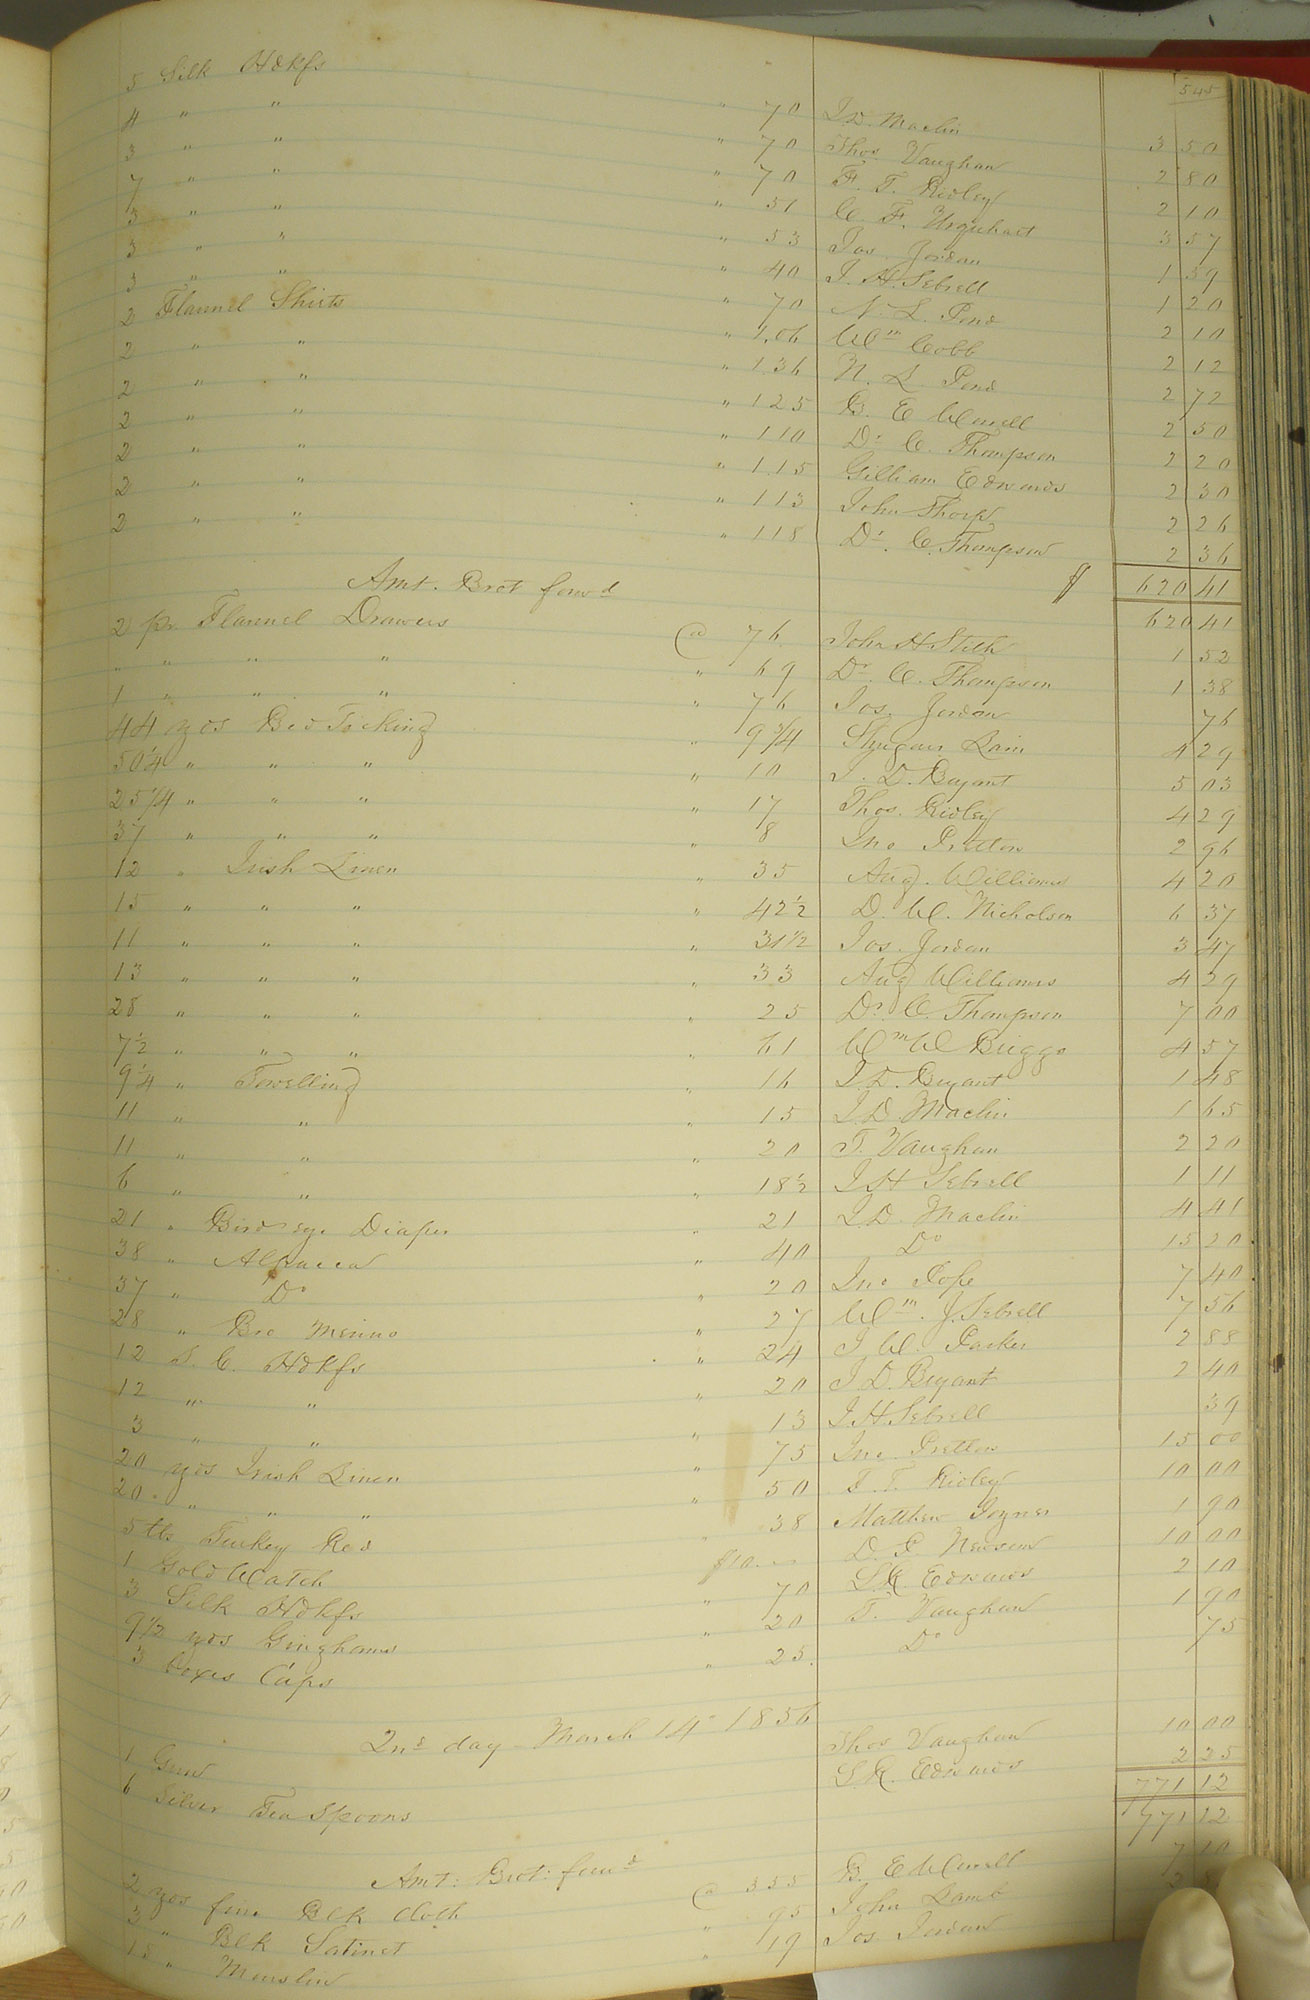 545
5 Silk Hdkfs " 70 J. D. Maclin 3 50
4 " " " 70 Thos. Vaughan 2 80
3 " " " 70 F. T. Ridley 2 10
7 " " " 51 C. F. Urquhart 3 57
3 " " " 53 Jos. Jordan 1 59
3 " " " 40 J. H. Sebrell 1 20
3 " " " 70 N. L. Pond 2 10
2 Flannel Shirts " 1.06 Wm Cobb 2 12
2 " " " 1 36 N. L. Pond 2 72
2 " " " 1 25 B. E Worrell 2 50
2 " " " 1 10 Dr C. Thompson 2 20
2 " " " 1 15 Gilliam Edwards 2 30
2 " " " 1 13 John Thorp 2 26
2 " " " 1 18 Dr. C. Thompson 2 36
$ 620 41
Amt. Brot forwd 620 41
2 pr Flannel Drawers @ 76 John H Stith 1 52
" " " " " 69 Dr. C. Thompson 1 38
1 " " " " 76 Jos. Jordan 76
44 yds Bed Ticking " 9 3/4 Rain 4 29
50 1/4 " " " " 10 J. D. Bryant 5 03
25 1/4 " " " " 17 Thos. Ridley 4 29
37 " " " " 8 Jno Pretlow 2 96
12 " Irish Linen " 35 Aug. Williams 4 20
15 " " " " 42 1/2 D. W. Nicholson 6 37
11 " " " " 31 1/2 Jos. Jordan 3 47
13 " " " " 33 Aug Williams 4 29
28 " " " " 25 Dr. C. Thompson 7 00
7 1/2 " " " " 61 Wm W Briggs 4 57
9 1/4 " Towelling " 16 J. D. Bryant 1 48
11 " " " 15 J. D Maclin 1 65
11 " " " 20 T. Vaughan 2 20
6 " " " 18 1/2 J H Sebrell 1 11
21 " Birds eye Diaper " 21 J. D. Maclin 4 41
38 " Alpacca " 40 Do 15 20
37 " Do " 20 Jno Pope 7 40
28 " Bro Merino " 27 Wm J. Sebrell 7 56
12 S. C. Hdkfs " 24 J. W. Parker 2 88
12 " " " 20 J D. Bryant 2 40
3 " " " 13 J. H. Sebrell 39
20 yds Irish Linen " 75 Jno Pretlow 15 00
20 " " " " 50 F. T. Ridley 10 00
5 lbs Turkey Red " 38 Matthew Joyner 1 90
1 Gold Watch $10. D. P. Newsom 10 00
3 Silk Hdkfs " 70 Edwards 2 10
9 1/2 yds Ginghams " 20 T. Vaughan 1 90
3 boxes Caps " 25 Do 75
2nd day - March 14 1856
1 Gun Thos Vaughan 10 00
6 Silver Tea Spoons Edwards 2 25
771 12
Amt: Brot: forwd 771 12
2 yds fine Blk Cloth @ 355 B. E Worrell 7 10
3 " Blk Satinet " 95 John Lamb 2
15 " Muslin " 19 Jos. Jordan